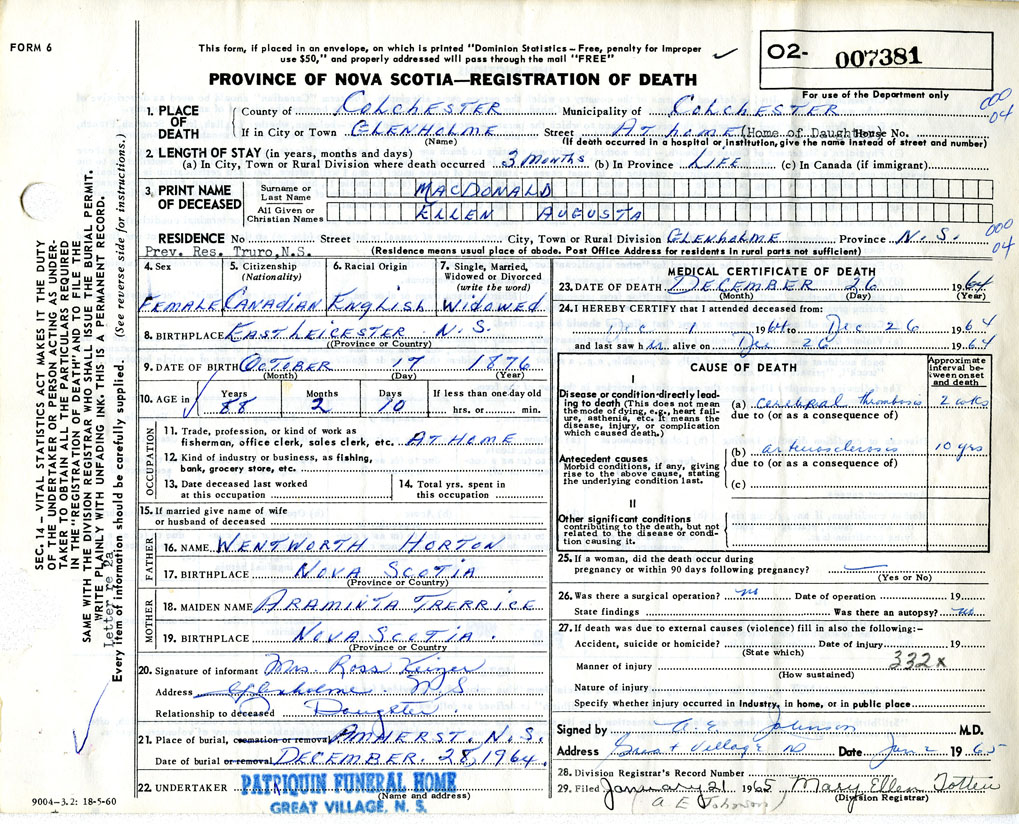 FORM 6
This form, if placed in an envelope, on which is printed "Dominion Statistics – Free, penalty for improper
use $50," and properly addressed will pass through the mail "FREE"
02- 007381
For use of the Department only
PROVINCE OF NOVA SCOTIA—REGISTRATION OF DEATH
000
04
1. PLACE OF DEATH
County of COLCHESTER Municipality of COLCHESTER
If in City or Town GLENHOLME Street AT HOME (Home of Daughter) House No.
(Name) (If death occurred in a hospital or institution, give the name instead of street and number)
2. LENGTH OF STAY (in years, months and days)
(a) In City, Town or Rural Division where death occurred 3 MONTHS (b) In Province LIFE (c) In Canada (if immigrant)
3. PRINT NAME OF DECEASED
Surname or Last Name MACDONALD
All Given or Christian Names ELLEN AUGUSTA
000
04
RESIDENCE No Street City, Town or Rural Division GLENHOLME Province N.S.
Prev. Res. Truro, N.S. (Residence means usual place of abode. Post Office Address for residents in rural parts not sufficient)
4. Sex FEMALE
5. Citizenship (Nationality) CANADIAN
6. Racial Origin ENGLISH
7. Single, Married, Widowed or Divorced (write the word) WIDOWED
8. BIRTHPLACE EAST LEICESTER N.S.
(Province or Country)
9. DATE OF BIRTH OCTOBER 17 1876
(Month) (Day) (Year)
10. AGE in Years 88 Months 2 Days 10 If less than one day old hrs. or min.
OCCUPATION
11. Trade, profession, or kind of work as
fisherman, office clerk, sales clerk, etc. AT HOME
12. Kind of industry or business, as fishing,
bank, grocery store, etc.
13. Date deceased last worked
at this occupation
14. Total yrs. spent in
this occupation
15. If married give name of wife
or husband of deceased
FATHER
16. NAME WENTWORTH HORTON
17. BIRTHPLACE NOVA SCOTIA
(Province or Country)
MOTHER
18. MAIDEN NAME ARAMINTA TRERRICE
19. BIRTHPLACE NOVA SCOTIA.
(Province or Country
20. Signature of informant Mrs. Ross
Address Glenholme N.S
Relationship to deceased Daughter.
21. Place of burial, cremation or removal AMHERST, N.S.
Date of burial or removal DECEMBER. 28, 1964.
22. UNDERTAKER PATRIQUIN FUNERAL HOME
(Name and address)
GREAT VILLAGE, N. S.
9004–3.2: 18-5-60
MEDICAL CERTIFICATE OF DEATH
23. DATE OF DEATH DECEMBER 26 1964
(Month) (Day) (Year)
24. I HEREBY CERTIFY that I attended deceased from:
Dec 1 1964 to Dec 26 1964
and last saw her alive on Dec 26 1964
CAUSE OF DEATH
Approximate interval between onset and death
I
Disease or condition directly leading to death (This does not mean the mode of dying, e.g., heart failure, asthenia, etc. It means the disease, injury, or complication which caused death.)
(a) cerebral thrombosis 2 wks
due to (or as a consequence of)
Antecedent causes
Morbid conditions, if any, giving rise to the above cause, stating the underlying condition last.
(b) arteriosclerosis 10 yrs
due to (or as a consequence of)
(c)
II
Other significant conditions
contributing to the death, but not related to the disease or condition causing it.
25. If a woman, did the death occur during
pregnancy or within 90 days following pregnancy?
(Yes or No)
26. Was there a surgical operation? no Date of operation 19
State findings Was there an autopsy? no
27. If death was due to external causes (violence) fill in also the following:–
Accident, suicide or homicide? Date of injury 19
(State which)
332x
Manner of injury
(How sustained)
Nature of injury
Specify whether injury occurred in Industry, in home, or in public place
Signed by A. E. Johnson M.D.
Address Great Village NS Date Jan 2 1965
28. Division Registrar's Record Number
29. Filed January 21 1965 Mary Ellen Totten
(A E Johnson) (Division Registrar)
SEC. 14 – VITAL STATISTICS ACT MAKES IT THE DUTY
OF THE UNDERTAKER OR PERSON ACTING AS UNDER-
TAKER TO OBTAIN ALL THE PARTICULARS REQUIRED
IN THE "REGISTRATION OF DEATH" AND TO FILE THE
SAME WITH THE DIVISION REGISTRAR WHO SHALL ISSUE THE BURIAL PERMIT.
WRITE PLAINLY WITH UNFADING INK. THIS IS A PERMANENT RECORD.
Letter re 2a
Every item of information should be carefully supplied. (See reverse side for instructions.)